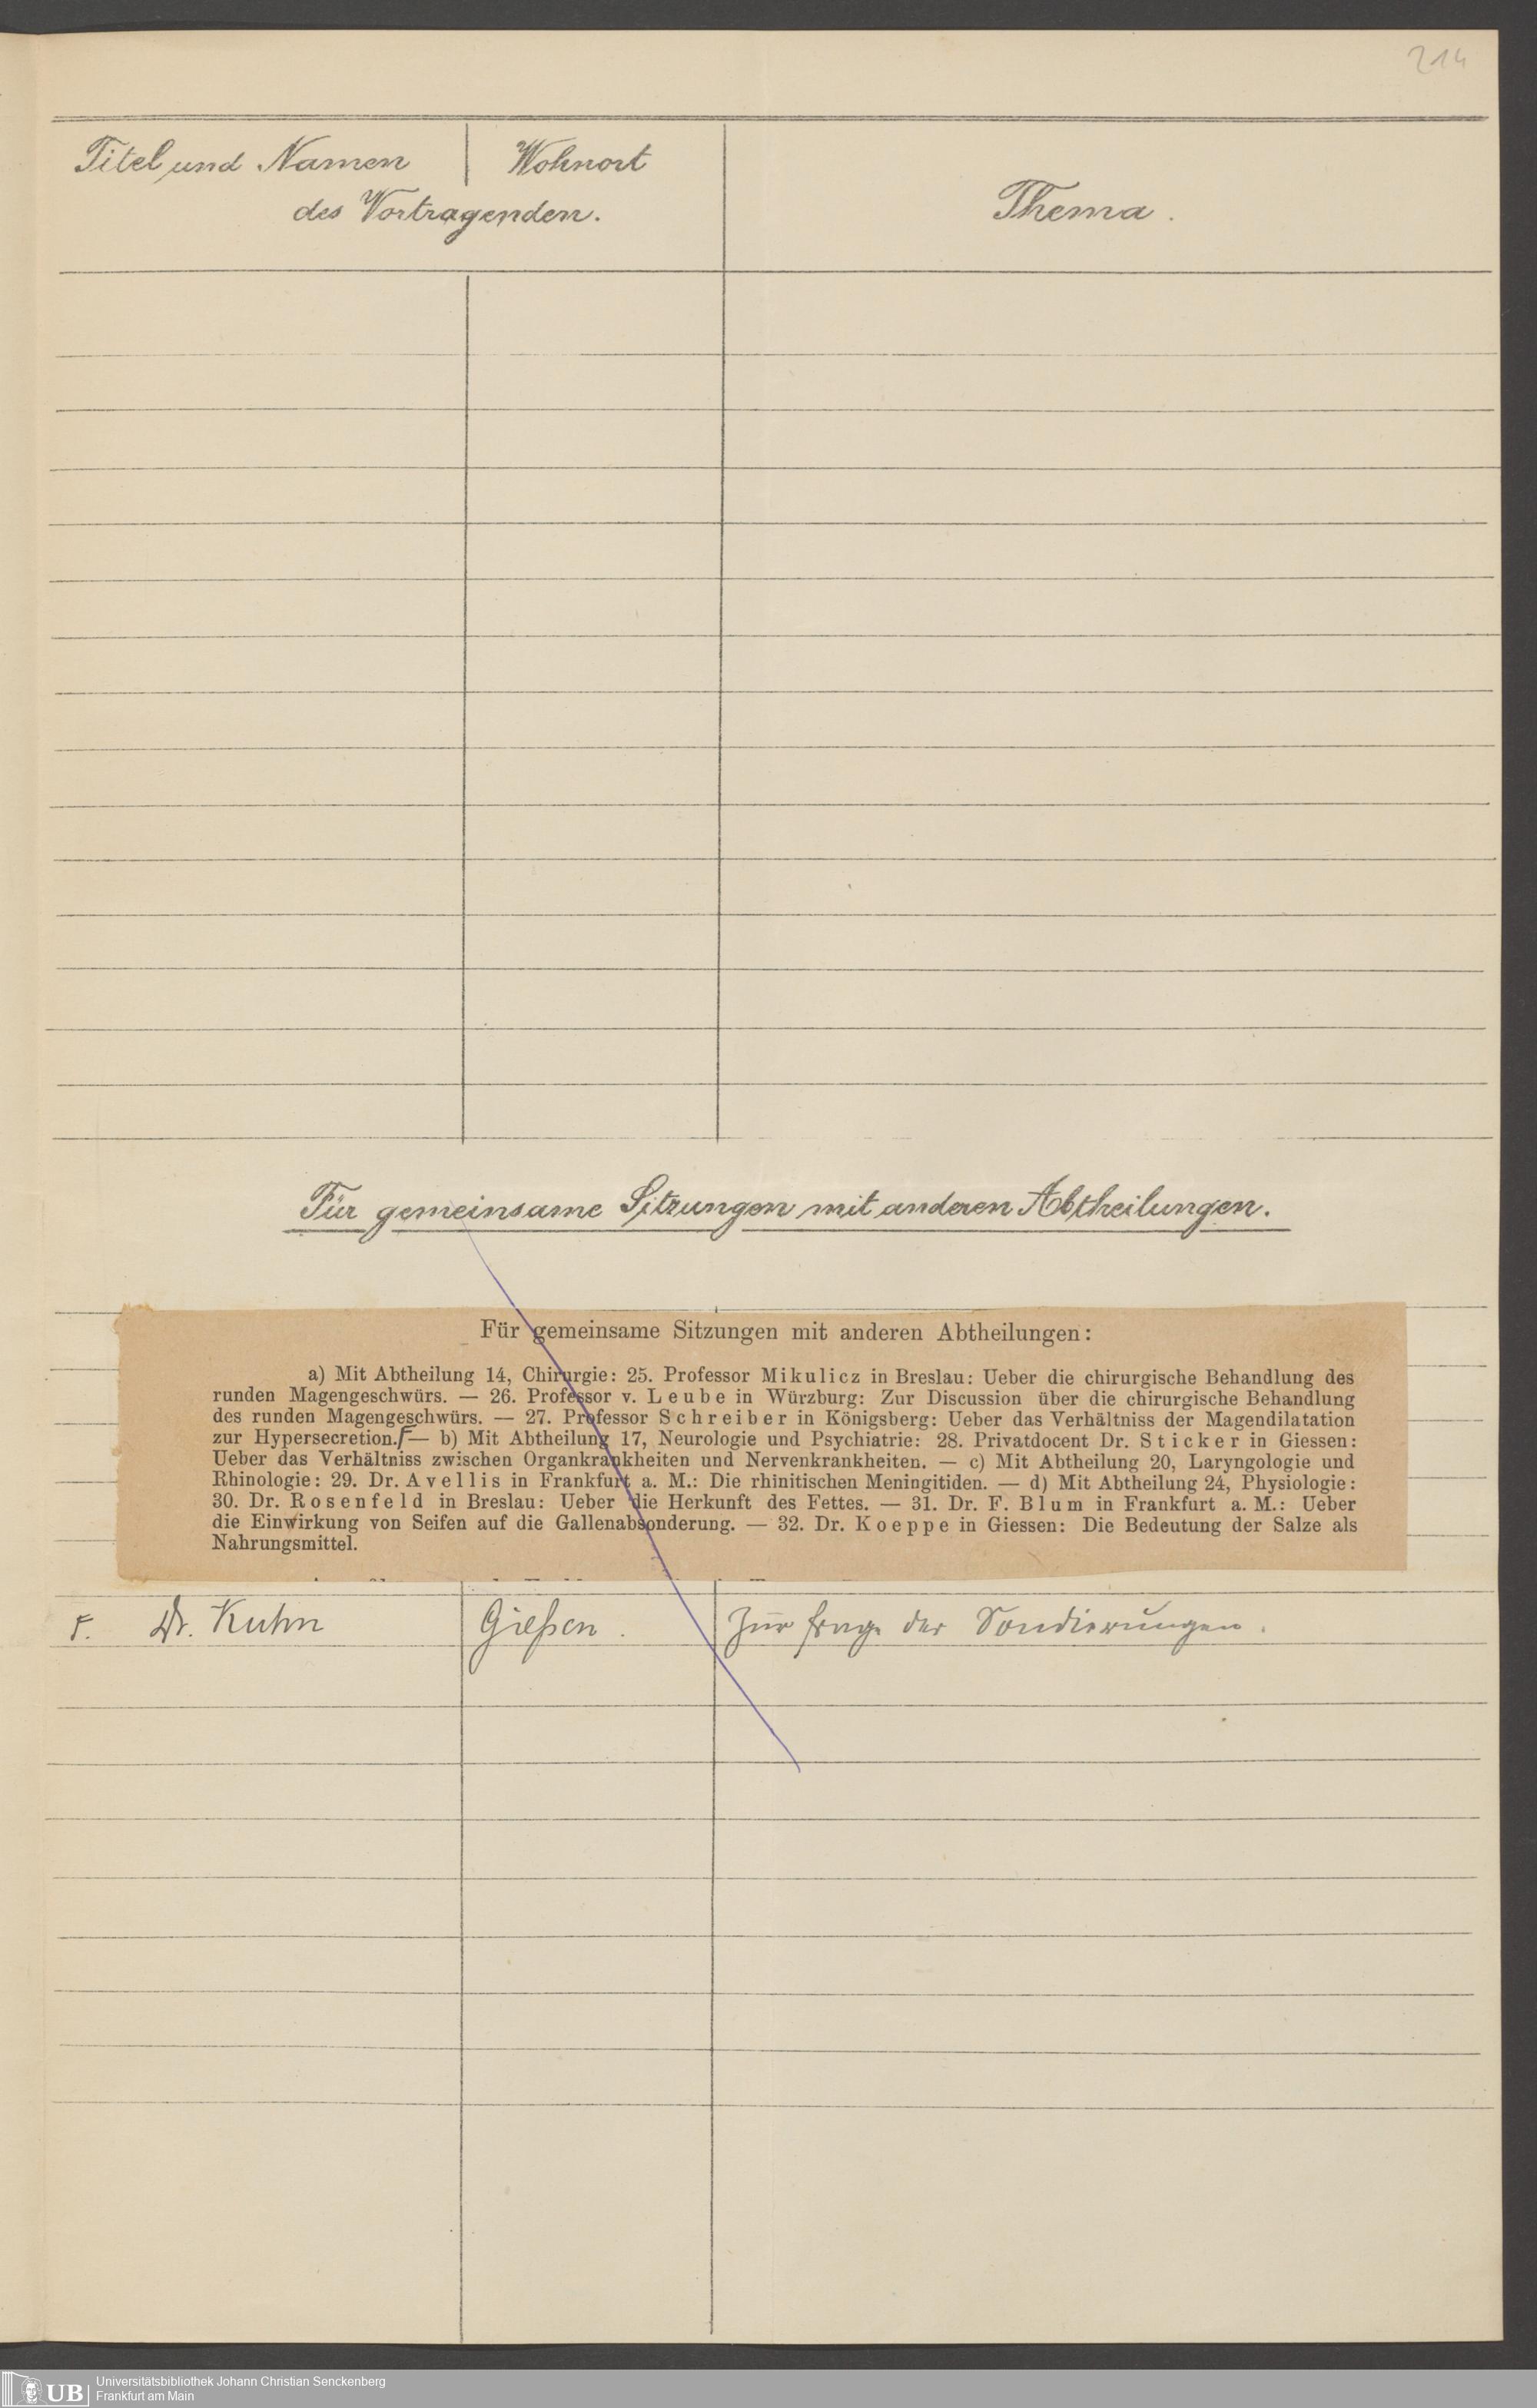 214
Titel und Namen
Wohnort
des Vortragenden.
Thema.
Für gemeinsame Sitzungen mit anderen Abtheilungen.
Für gemeinsame Sitzungen mit anderen Abtheilungen:
a) Mit Abtheilung 14, Chirurgie: 25. Professor Mikulicz in Breslau: Ueber die chirurgische Behandlung des
runden Magengeschwürs. — 26. Professor v. Leube in Würzburg: Zur Discussion über die chirurgische Behandlung
des runden Magengeschwürs. — 27. Professor Schreiber in Königsberg: Ueber das Verhältniss der Magendilatation
zur Hypersecretion. — b) Mit Abtheilung 17, Neurologie und Psychiatrie: 28. Privatdocent Dr. Sticker in Giessen:
Ueber das Verhältniss zwischen Organkrankheiten und Nervenkrankheiten. — c) Mit Abtheilung 20, Laryngologie und
Rhinologie: 29. Dr. Avellis in Frankfurt a. M.: Die rhinitischen Meningitiden. — d) Mit Abtheilung 24, Physiologie:
30. Dr. Rosenfeld in Breslau: Ueber die Herkunft des Fettes. — 31. Dr. F. Blum in Frankfurt a. M.: Ueber
die Einwirkung von Seifen auf die Gallenabsonderung. — 32. Dr. Koeppe in Giessen: Die Bedeutung der Salze als
Nahrungsmittel.
Dr. Kuhn Gießen. Zur Frage der Sondierungen.
UB
Universitätsbibliothek Johann Christian Senckenberg
Frankfurt am Main